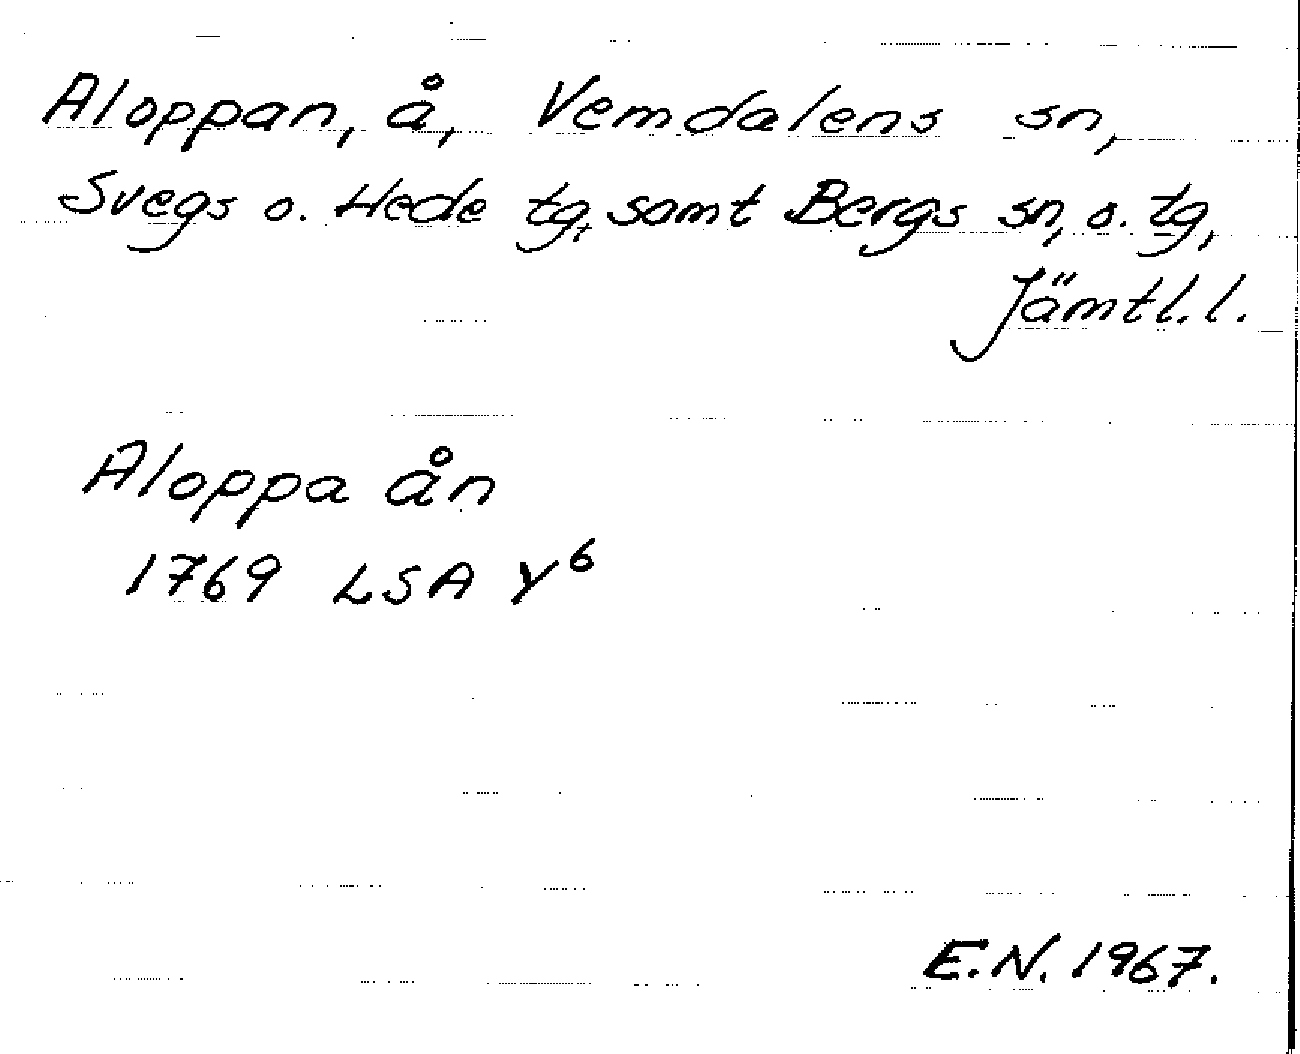 Aloppan, å, Vemdalens sn,
Svegs o. Hede tg, samt Bergs sn, o. tg,
Jämtl. l.
Aloppa ån
1769 LSA Y⁶
E.N. 1967.